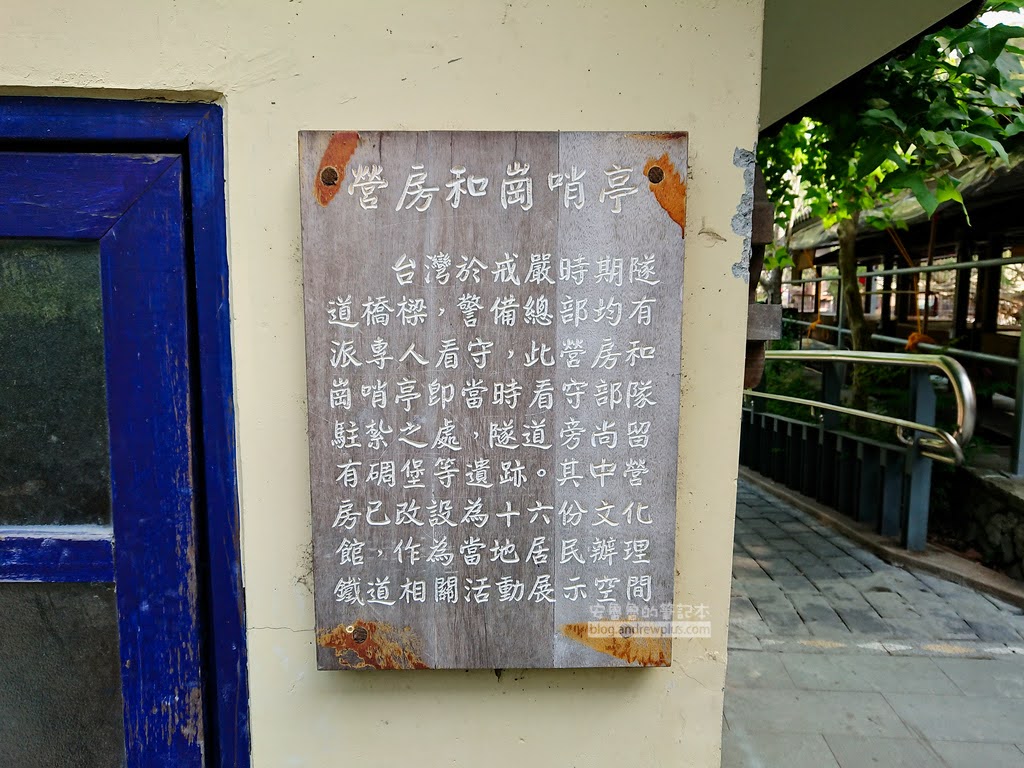 營房和崗哨亭
台灣於戒嚴時期隧
道橋樑，警備總部均有
派專人看守，此營房和
崗哨亭即當時看守部隊
駐紮之處，隧道旁尚留
有碉堡等遺跡。其中營
房已改設為十六份文化
館，作為當地居民辦理
鐵道相關活動展示空間
安魯魯的筆記本
blog.andrewplus.com